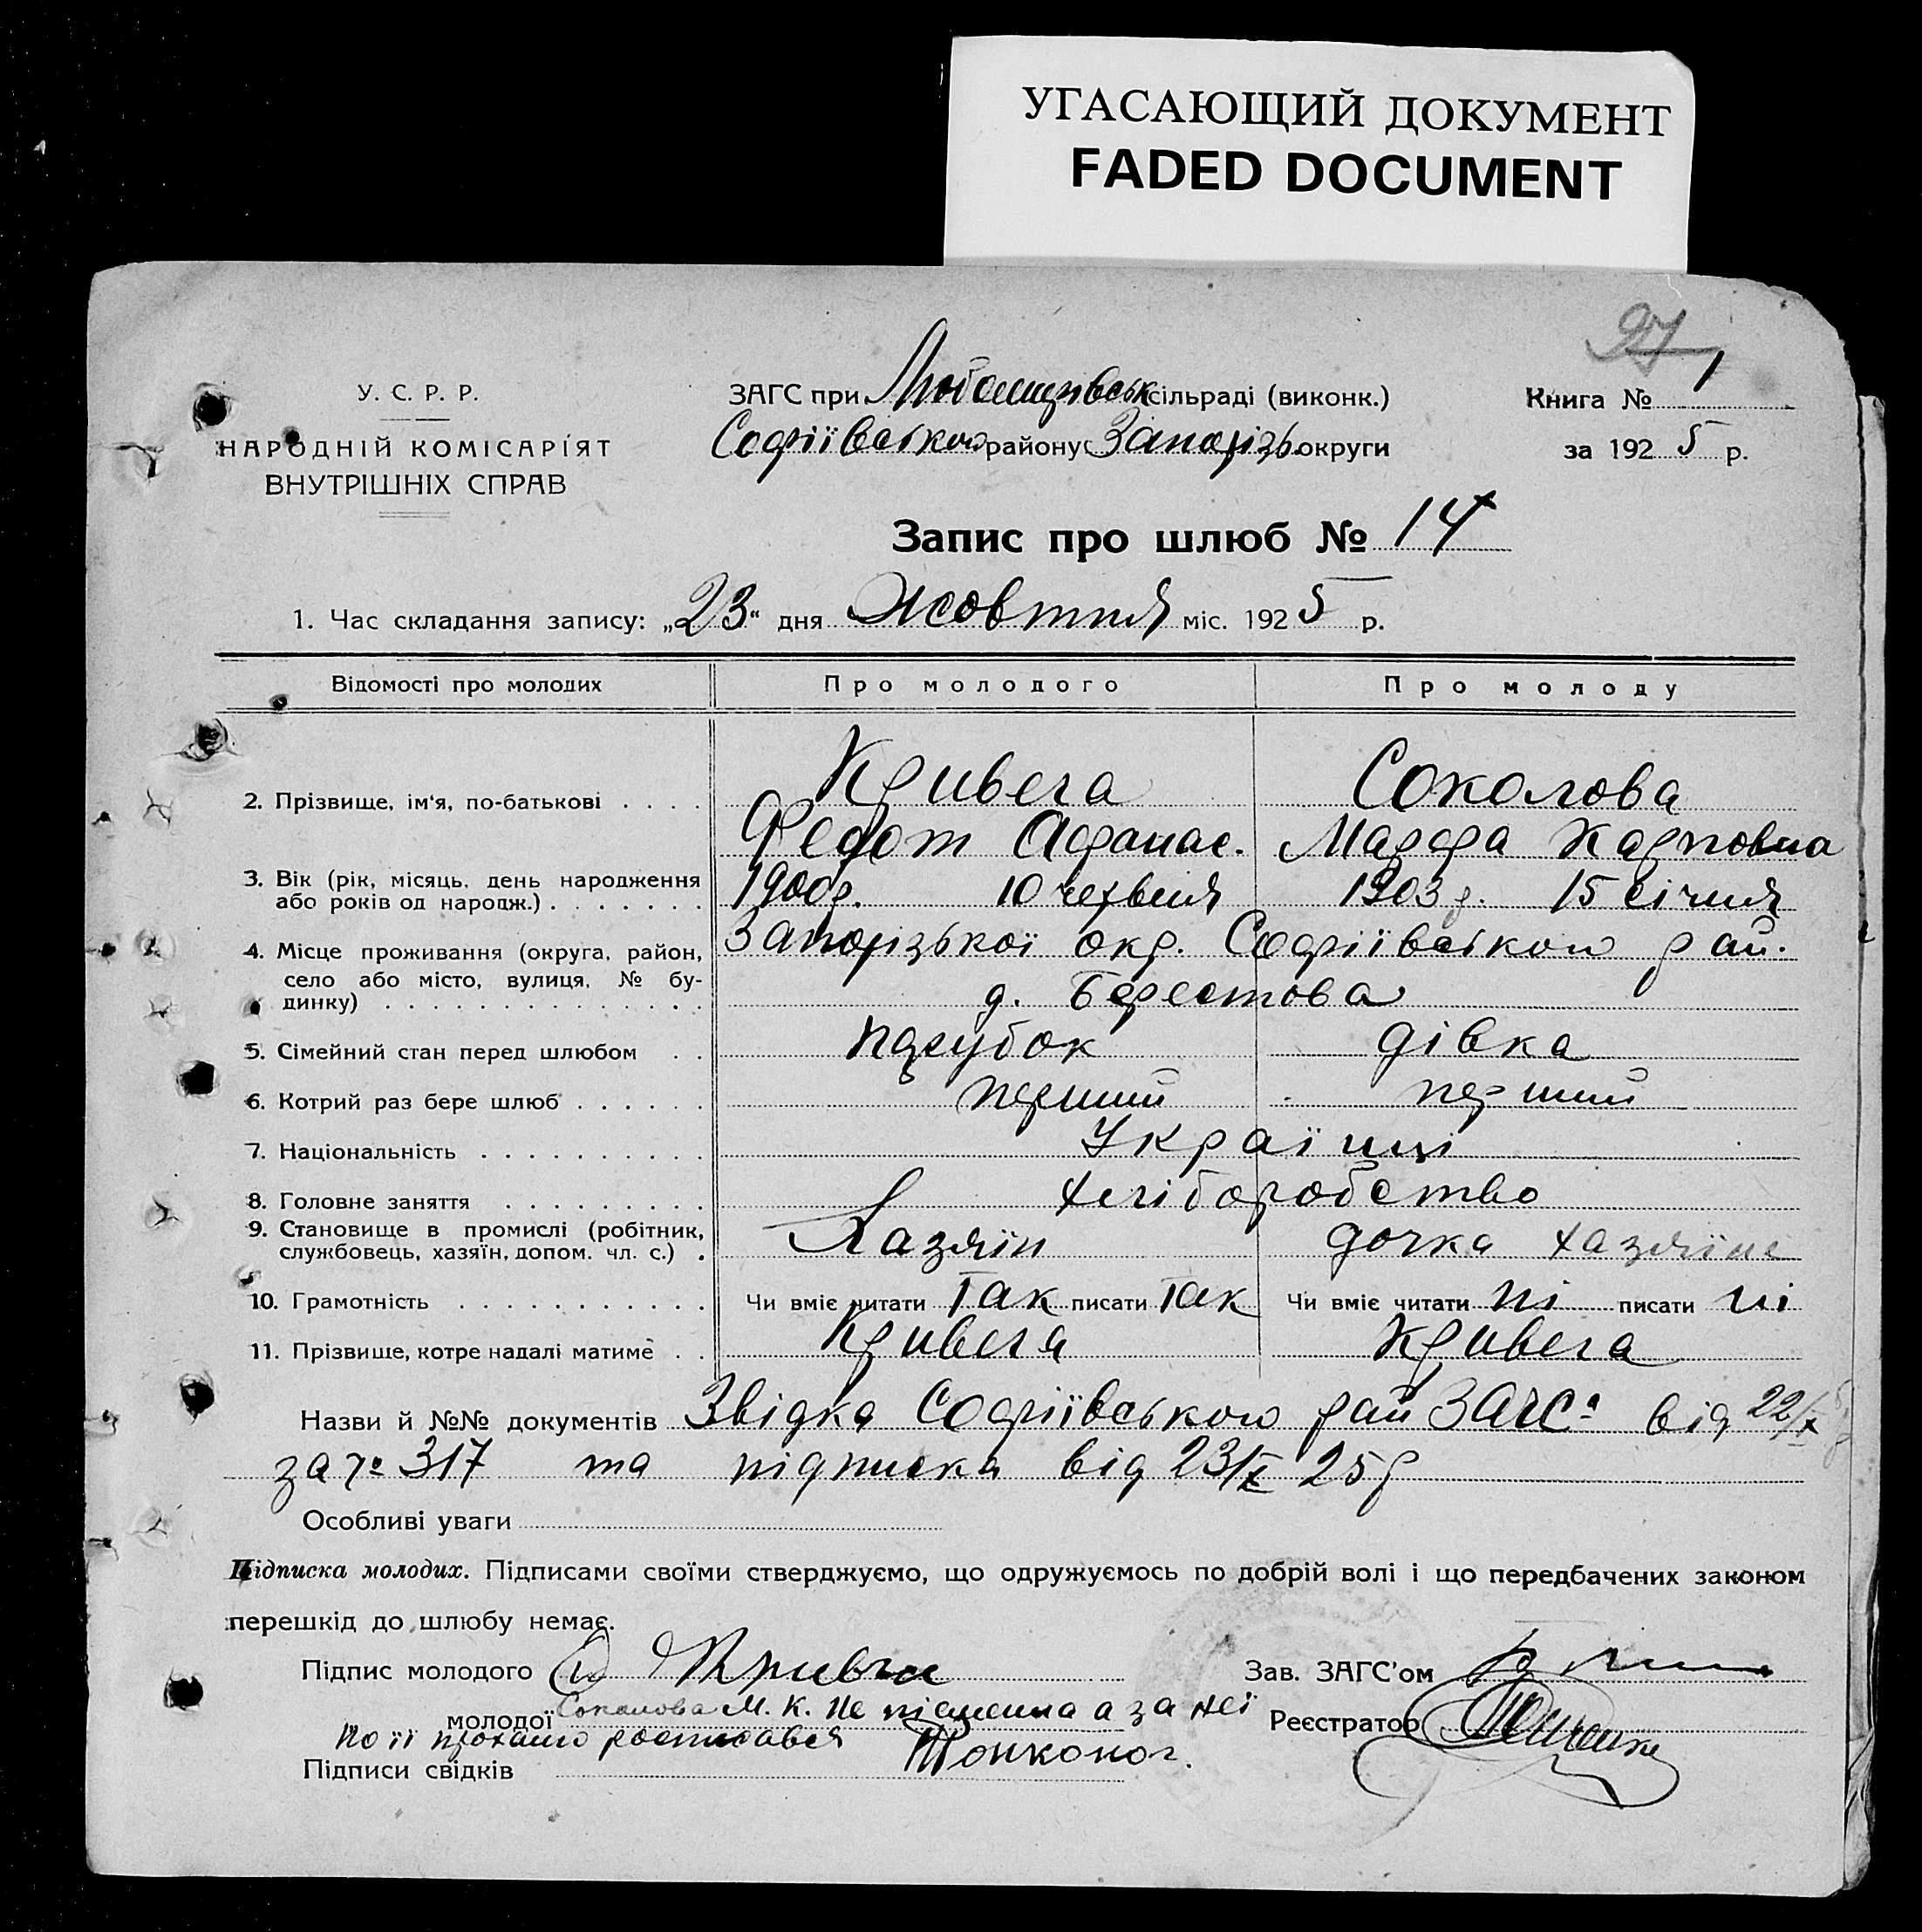 УГАСАЮЩИЙ ДОКУМЕНТ
FADED DOCUMENT
У. С. Р. Р.
НАРОДНІЙ КОМІСАРІЯТ
ВНУТРІШНІХ СПРАВ
ЗАГС при сільраді (виконк.)
Софіївського району Запорізь. округи
27 1
Книга №
за 1925 р.
Запис про шлюб № 14
1. Час складання запису: „23“ дня жовтня міс. 1925 р.
Відомості про молодих Про молодого Про молоду
2. Прізвище, ім'я, по-батькові . . . . Кривега Соколова
Федот Афанас. Марфа Карповна
3. Вік (рік, місяць, день народження 1900р. 10 червня 1903р. 15 січня
або років од народж.) . . . . . . .
4. Місце проживання (округа, район, Запорізької окр. Софіївського рай.
село або місто, вулиця, № бу-
динку) . . . . . . . . . . . . . . . д. Берестова
5. Сімейний стан перед шлюбом . . парубок дівка
6. Котрий раз бере шлюб . . . . . . перший перший
7. Національність . . . . . . . . . . Українці
8. Головне заняття . . . . . . . . . хліборобство
9. Становище в промислі (робітник,
службовець, хазяїн, допом. чл. с.) . Хазяїн дочка хазяїна
10. Грамотність . . . . . . . . . . . Чи вміє читати Так писати Так Чи вміє читати ні писати ні
11. Прізвище, котре надалі матиме . . Кривега Кривега
Назви й №№ документів Звідка Софіївського рай ЗАГСа від 22/X
за № 317 та підписка від 23/X 25р
Особливі уваги
Підписка молодих. Підписами своїми стверджуємо, що одружуємось по добрій волі і що передбачених законом
перешкід до шлюбу немає.
Підпис молодого Зав. ЗАГС'ом
молодої Соколова М. К. не письменна а за неї Реєстратор
по її проханю росписався Тонконог.
Підписи свідків